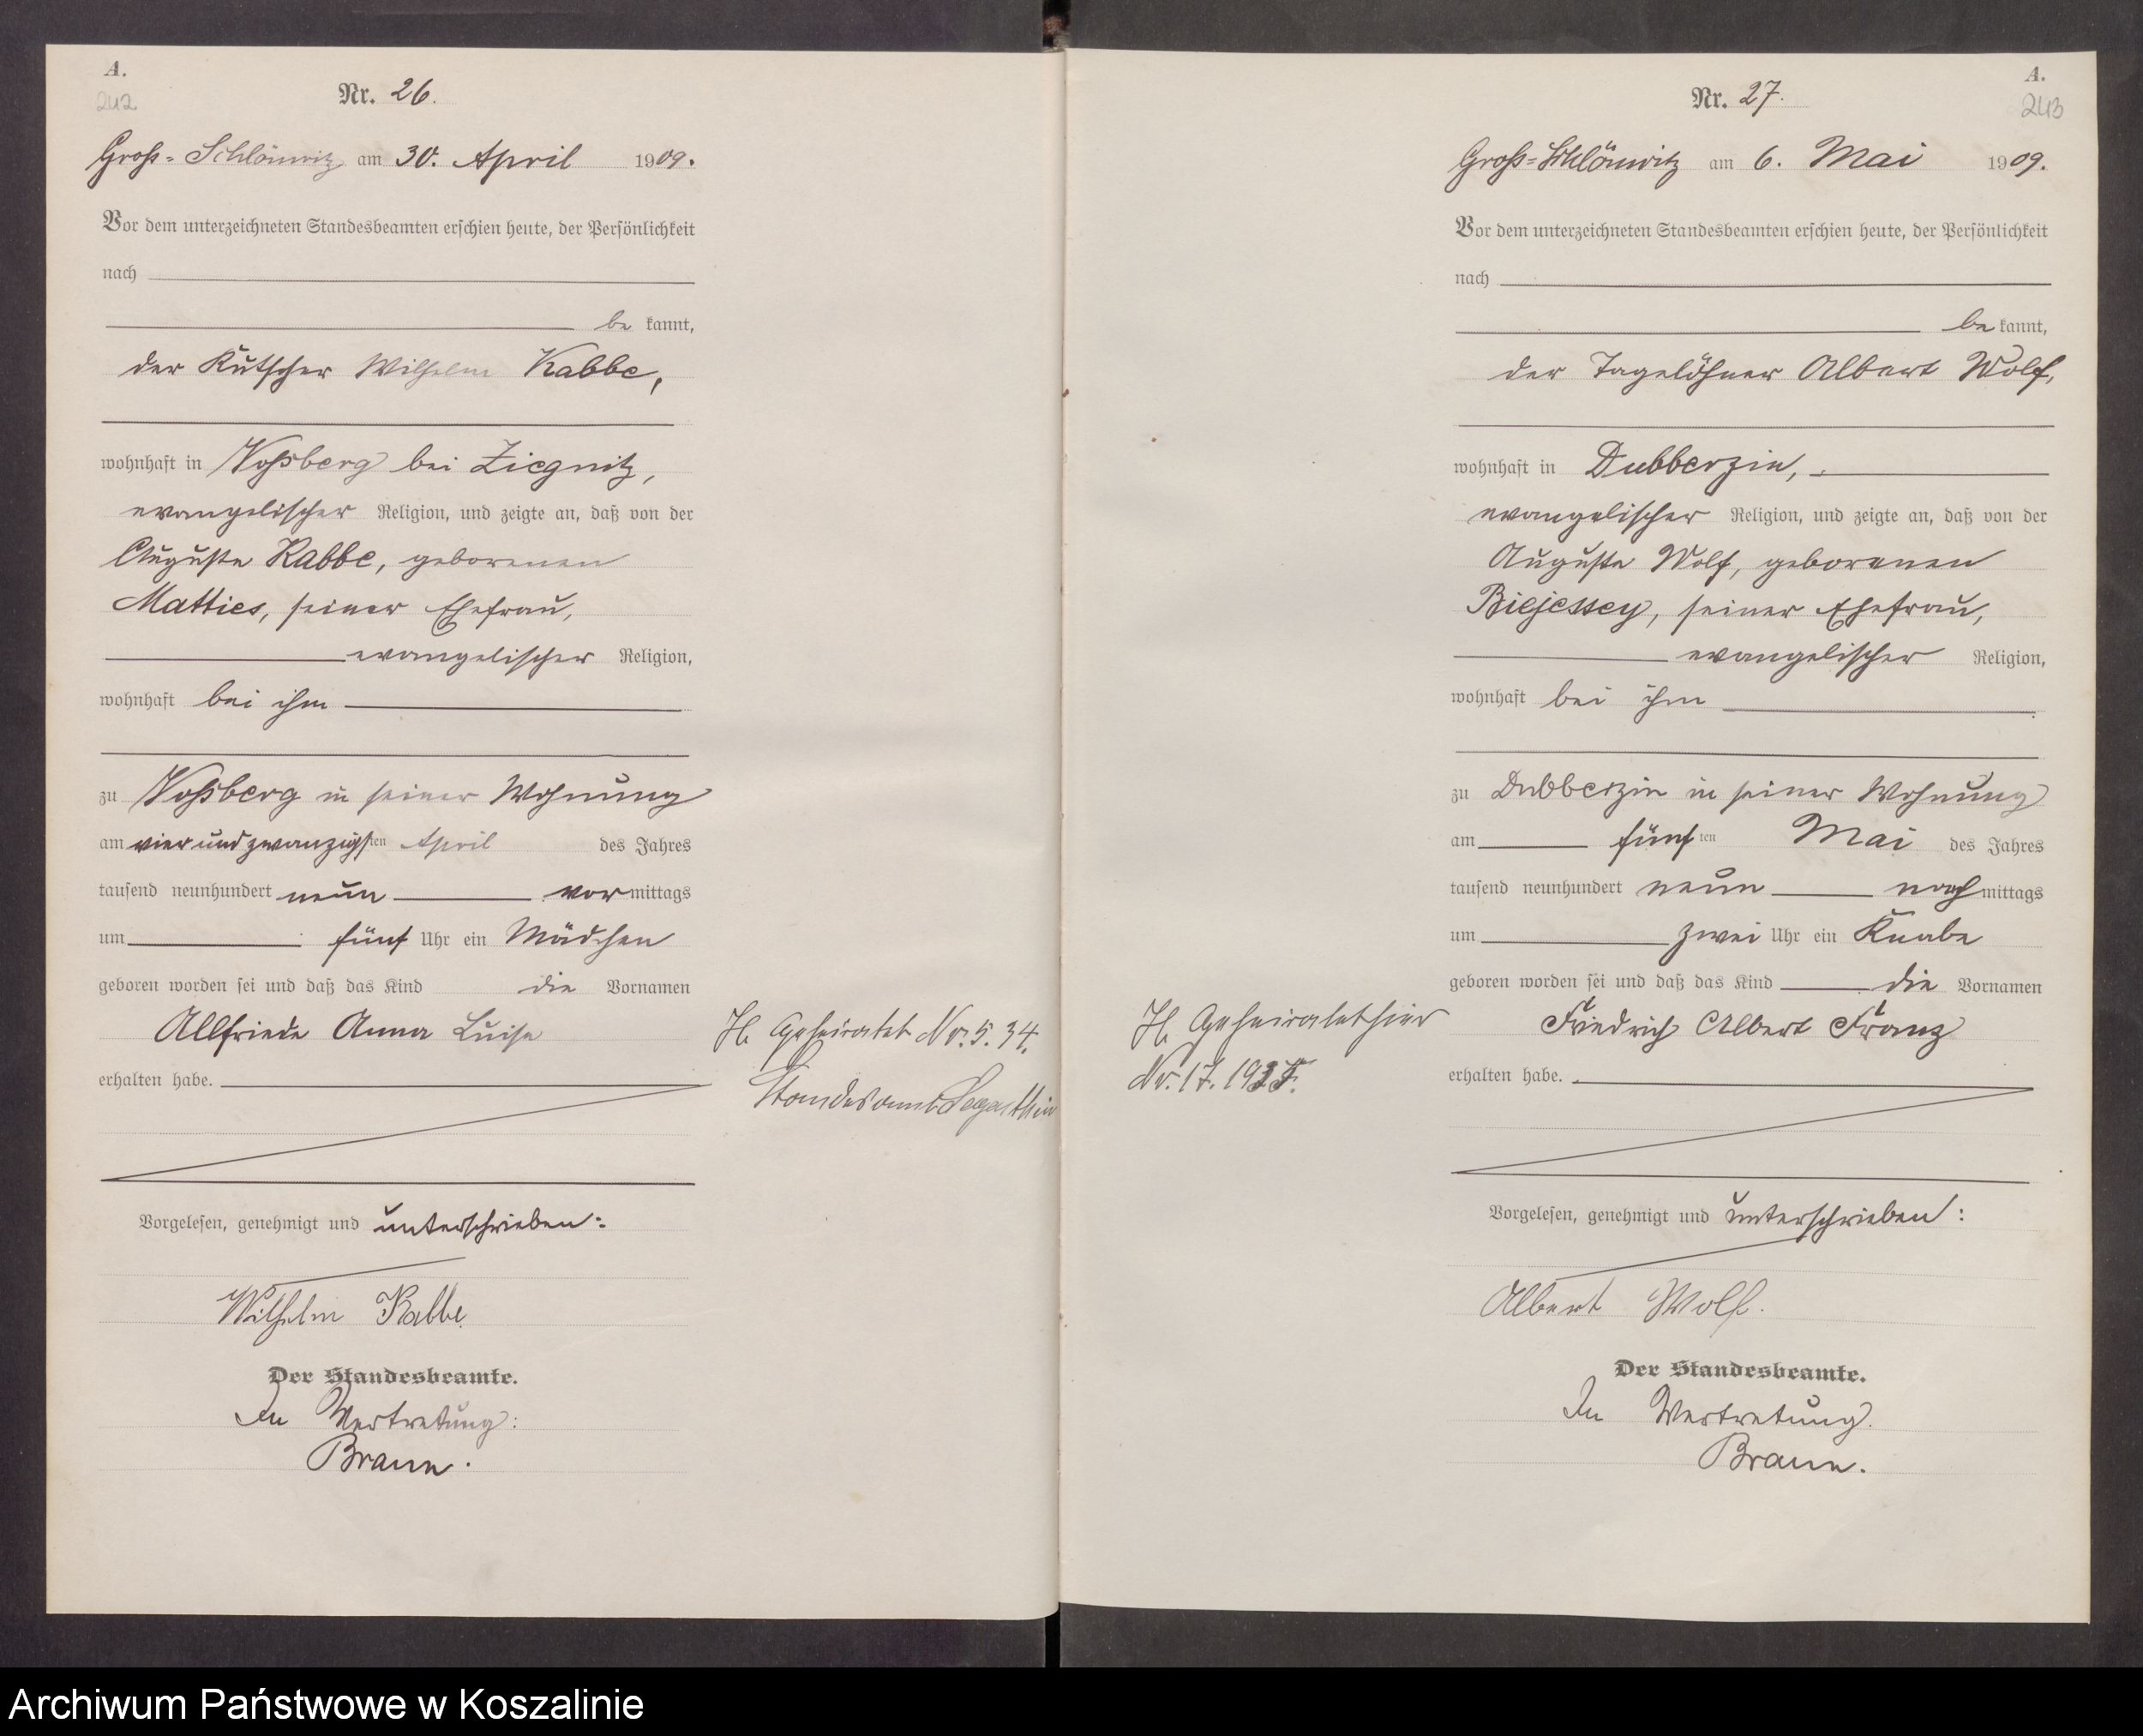 A.
242
Nr. 26.
Groß-Schlönwitz am 30. April 1909.
Vor dem unterzeichneten Standesbeamten erschien heute, der Persönlichkeit
nach
be kannt,
der Kutscher Wilhelm Kabbe,
wohnhaft in Voßberg bei Ziegnitz,
evangelischer Religion, und zeigte an, daß von der
Auguste Kabbe, geborenen
Matties, seiner Ehefrau,
evangelischer Religion,
wohnhaft bei ihm
zu Voßberg in seiner Wohnung
am vierundzwanzigsten April des Jahres
tausend neunhundert neun vormittags
um fünf Uhr ein Mädchen
geboren worden sei und daß das Kind die Vornamen
Allfriede Anna Luise
erhalten habe.
Vorgelesen, genehmigt und unterschrieben:
Wilhelm Kabbe
Der Standesbeamte.
In Vertretung:
Braun.
Geheiratet Nr. 5. 34.
Standesamt
A.
243
Nr. 27.
Groß-Schlönwitz am 6. Mai 1909.
Vor dem unterzeichneten Standesbeamten erschien heute, der Persönlichkeit
nach
be kannt,
der Tagelöhner Albert Wolf,
wohnhaft in Dubberzin,
evangelischer Religion, und zeigte an, daß von der
Auguste Wolf, geborenen
Biejessey, seiner Ehefrau,
evangelischer Religion,
wohnhaft bei ihm
zu Dubberzin in seiner Wohnung
am fünften Mai des Jahres
tausend neunhundert neun nachmittags
um zwei Uhr ein Knabe
geboren worden sei und daß das Kind die Vornamen
Friedrich Albert Franz
erhalten habe.
Vorgelesen, genehmigt und unterschrieben:
Albert Wolf.
Der Standesbeamte.
In Vertretung.
Braun.
Geheiratet hier
Nr. 17.
Archiwum Państwowe w Koszalinie